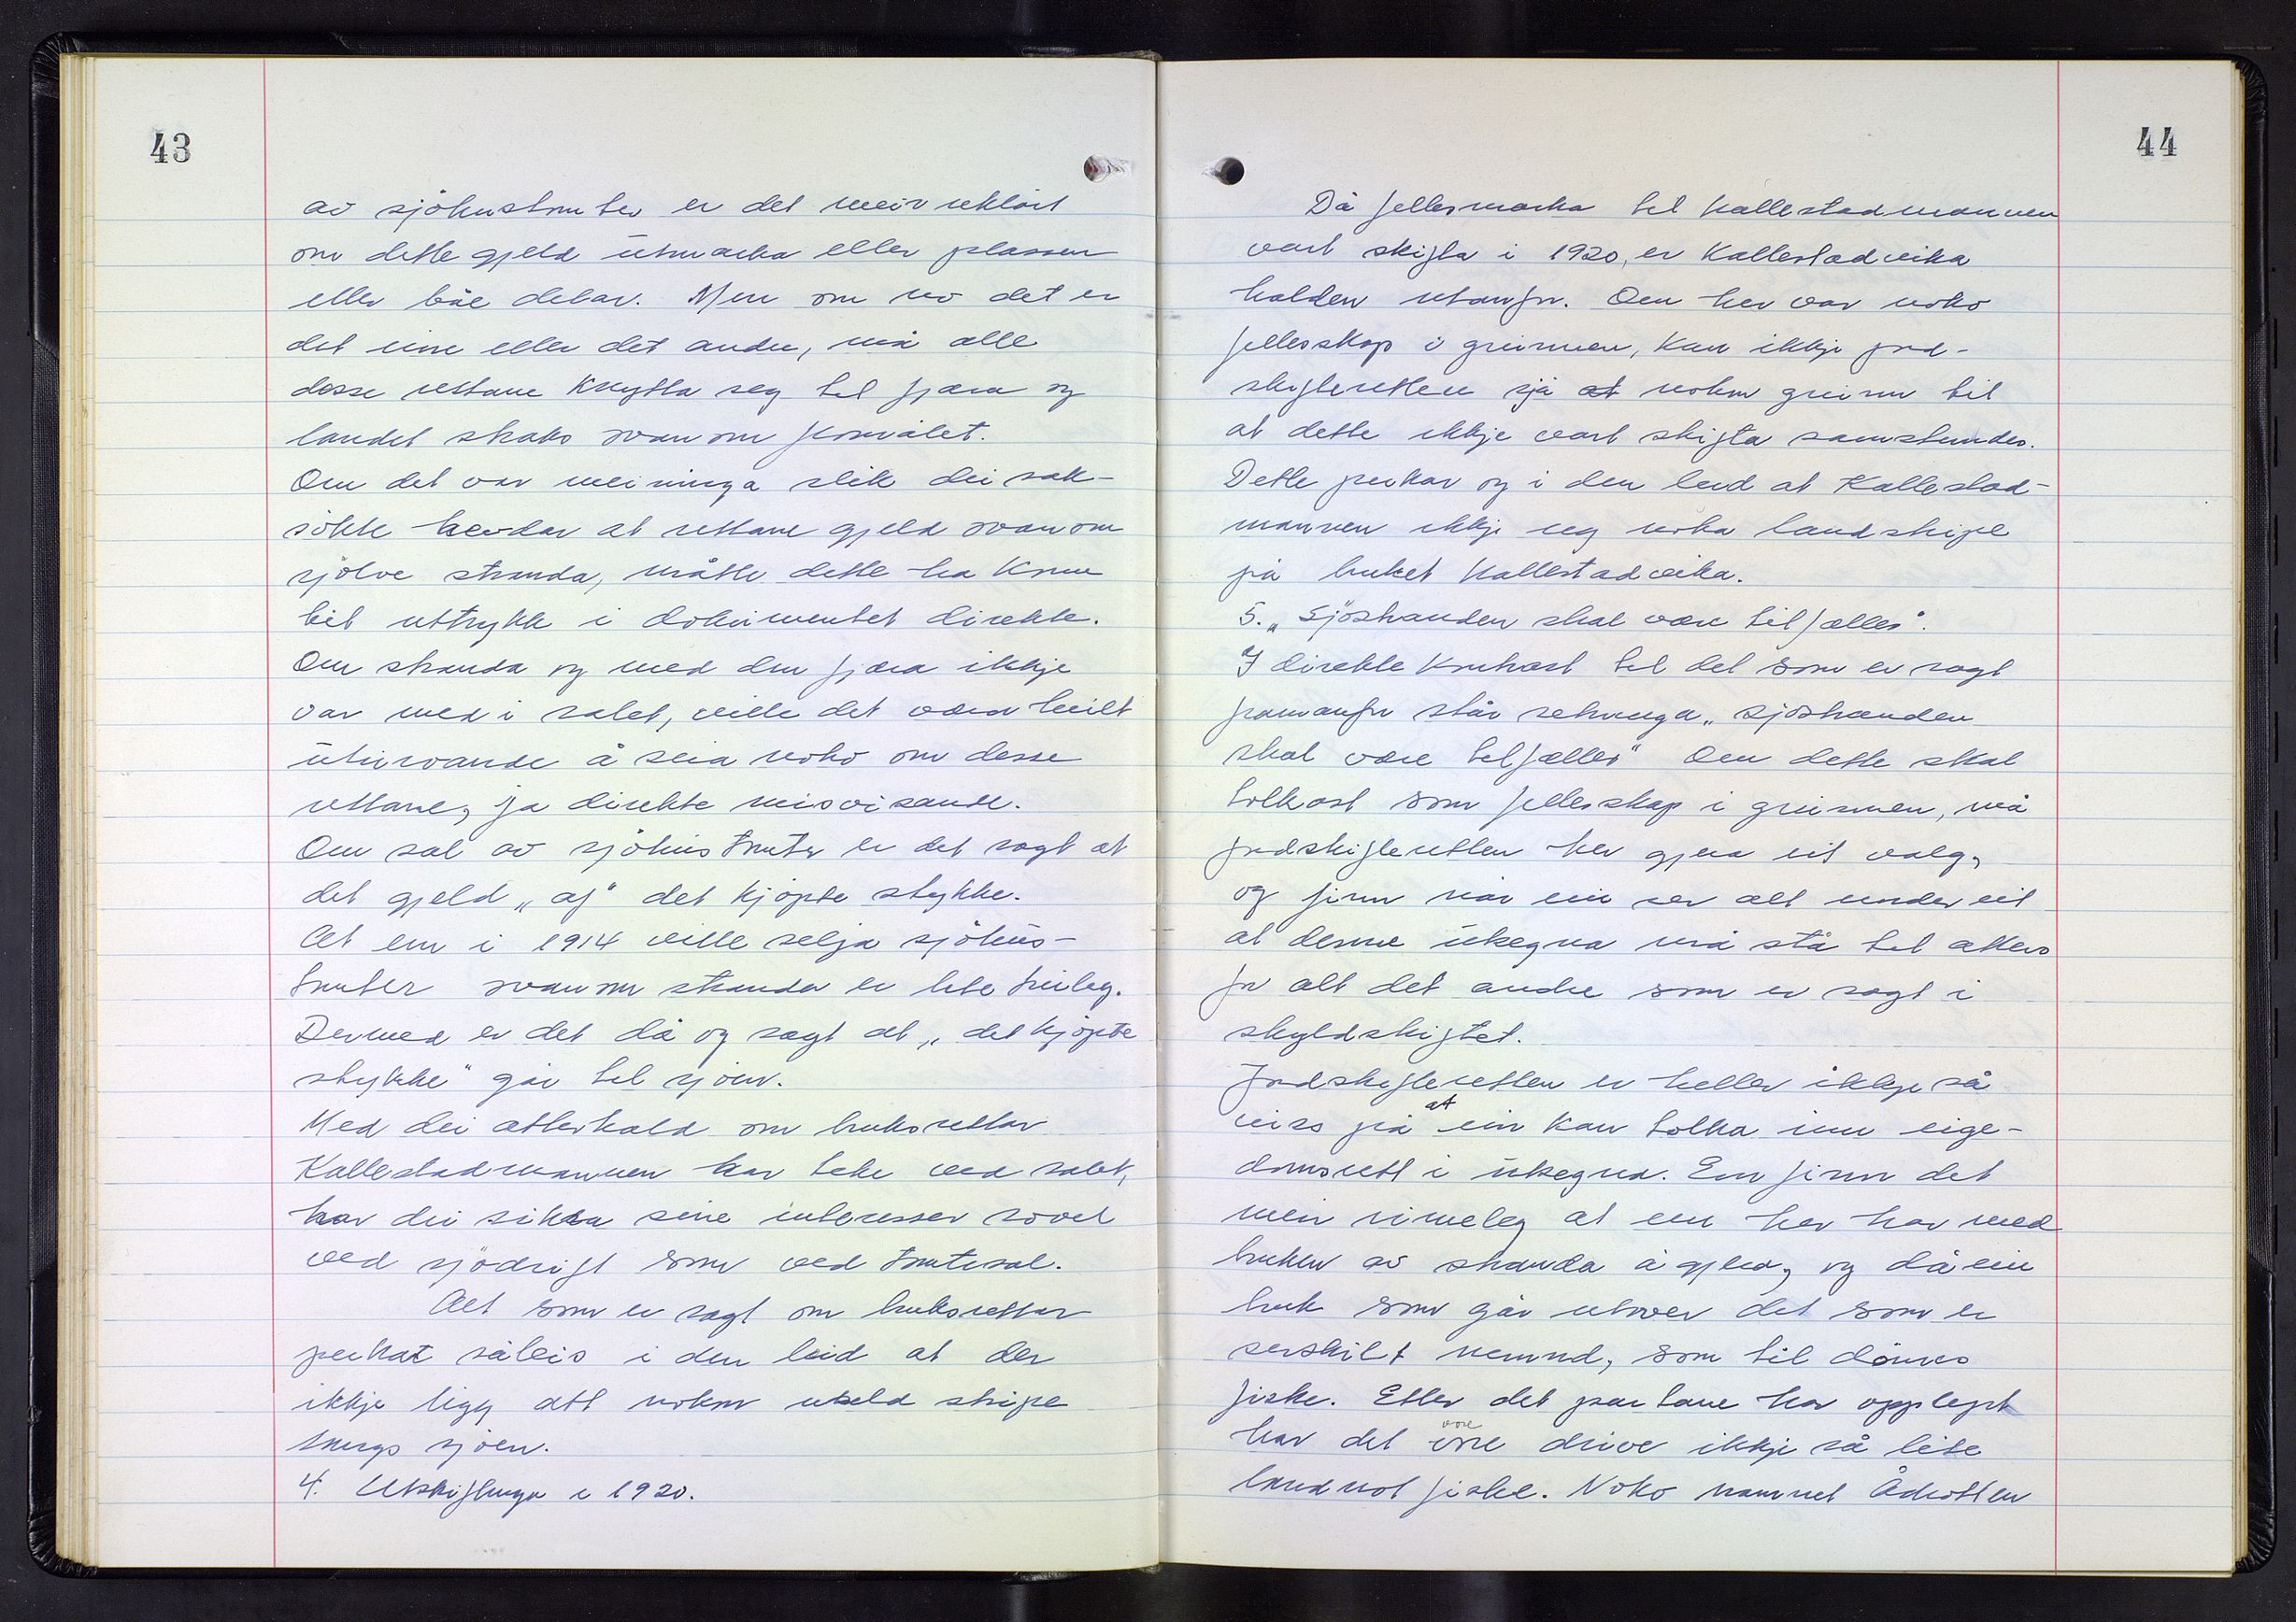 43
av sjöhustomter er det meir uklårt
om dette gjeld utmarka eller plassen
eller båe delar. Men om no det er
det eine eller det andre, må alle
desse rettane knytta seg til fjæra og
landet straks ovanom flomålet.
Om det var meininga slik dei sak-
sökte hevdar at rettane gjeld ovanom
sjölve stranda, måtte dette ha kome
til uttrykk i dokumentet direkte.
Om stranda og med den fjæra ikkje
var med i salet, ville det vera heilt
uturvande å seia noko om desse
rettane, ja direkte misvisande.
Om sal av sjöhustomter er det sagt at
det gjeld „af" det kjöpte stykke.
At ein i 1914 ville selja sjöhus-
tomter ovanom stranda er lite truleg.
Dermed er det då og sagt at „det kjöpte
stykke" går til sjöen.
Med dei atterhald om bruksrettar
Kallestadmannen har teke ved salet,
har dei sikra sine interesser sovel
ved sjödrift som ved tomtesal.
Alt som er sagt om bruksrettar
peikar såleis i den leid at der
ikkje ligg att nokon useld stripe
langs sjöen.
4. Utskiftinga i 1920.
44
Då fellesmarka til Kallestadmannen
vart skifta i 1920, er Kallestadvika
halden utanfor. Om her var noko
fellesskap i grunnen, kan ikkje jord-
skifteretten sjå at nokon grunn til
at dette ikkje vart skifta samstundes.
Dette peikar og i den leid at Kallestad-
mannen ikkje eig noka landstripe
på bruket Kallestadvika.
5. „Sjöstranden skal være til fælles".
I direkte kontrast til det som er sagt
framanfor står setninga „sjöstranden
skal være til fælles" Om dette skal
tolkast som fellesskap i grunnen, må
jordskifteretten her gjera eit valg,
og finn når ein ser alt under eit
at denne utsegna må stå til atters
for alt det andre som er sagt i
skyldskiftet.
Jordskifteretten er heller ikkje så
viss på at ein kan tolka inn eige-
domsrett i utsegna. Ein finn det
meir rimeleg at ein her har med
bruken av stranda å gjera, og då ein
bruk som går utover det som er
serskilt nemnd, som til dömes
fiske. Etter det partane har opplyst
har det vore drive ikkje så lite
landnotfiske. Noko namnet Ådnotten